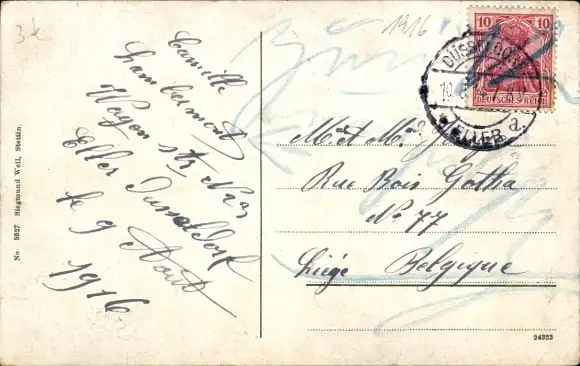 3k
1916
10 10
DEUTSCHES REICH
DÜSSELDORF
ELLER
a.
Camille
Lambermont
Wagen str No 23
Eller Dusseldorf
le 9 Aout
1916
M. et Me
Rue Bois Gotha
No 77
Liège Belgique
No 9527 Siegmund Weil, Stettin.
24323